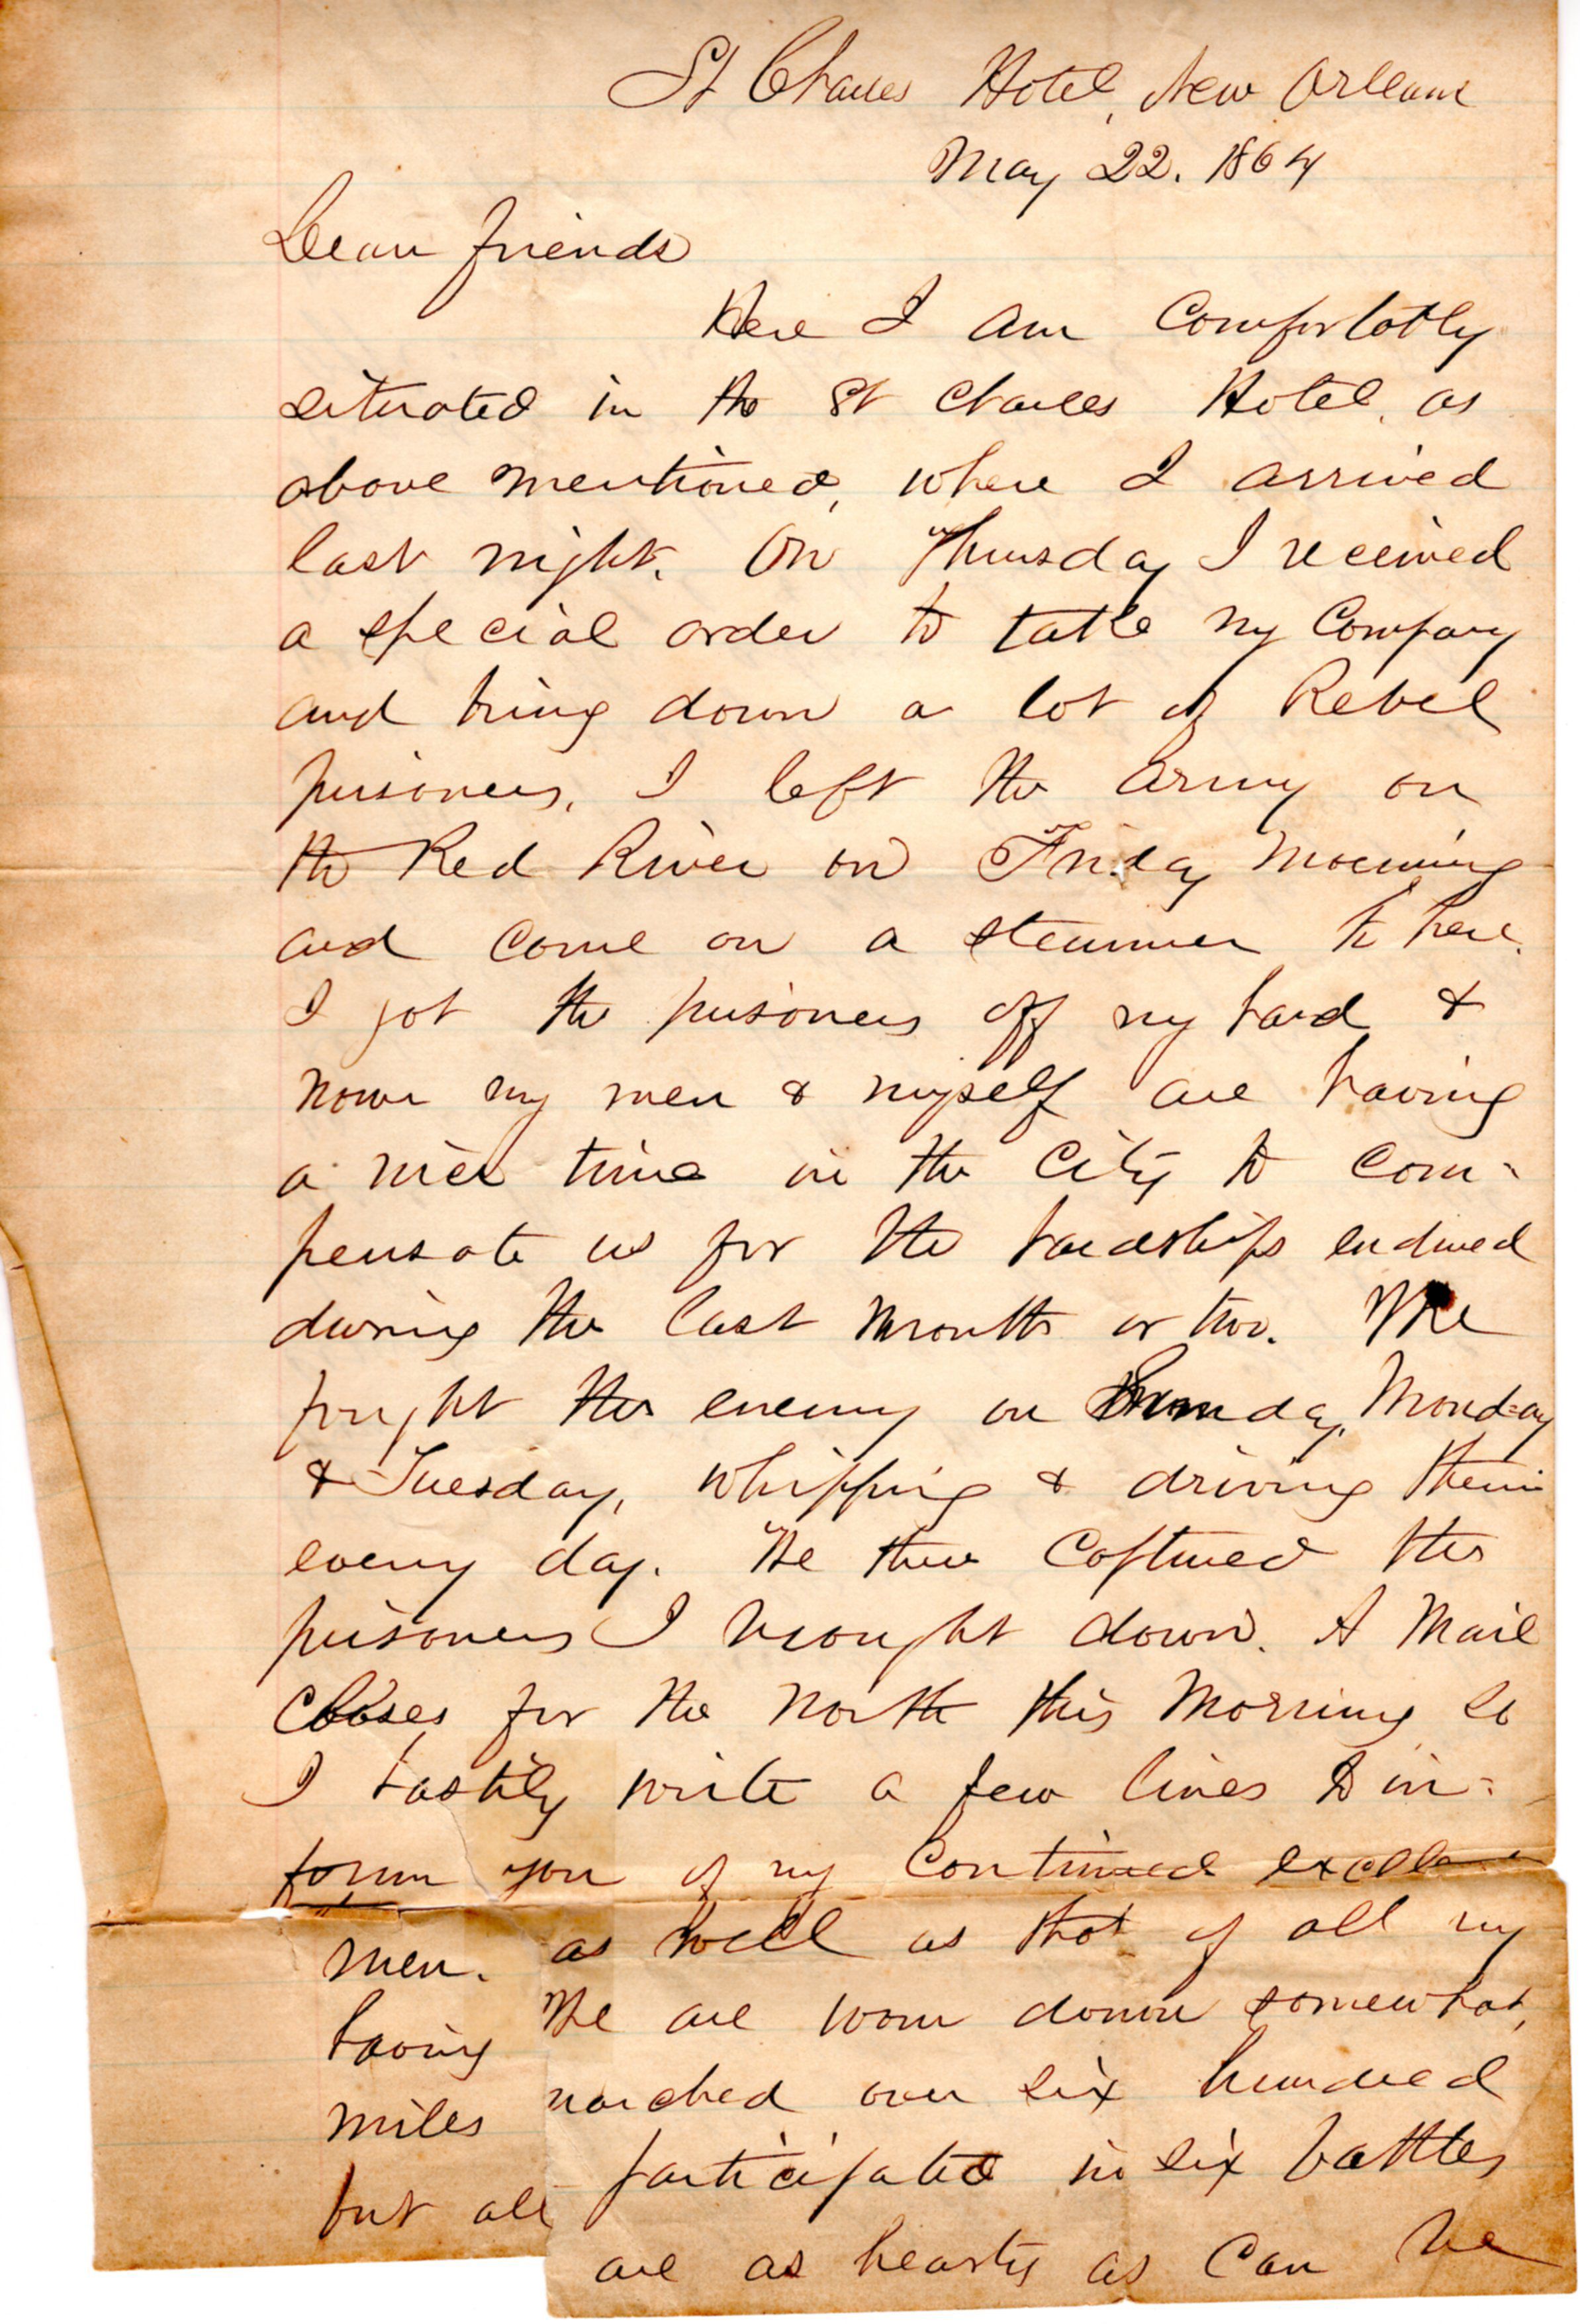 St Charles Hotel, New Orleans
May 22. 1864
Dear friends
Here I am Comfortably
situated in the St Charles Hotel, as
above mentioned, where I arrived
last night. On Thursday I received
a special order to take my Company
and bring down a lot of Rebel
prisoners, I left the Army on
the Red River on Friday morning
and come on a steamer to here.
I got the prisoners off my hand &
now my men & myself are having
a nice time in the City to com-
pensate us for the hardships endured
during the last month or two. We
fought the enemy on Sunday, Monday
& Tuesday, whipping & driving them
every day. We then Captured the
prisoners I brought down. A Mail
closes for the North this Morning so
I hastily write a few lines to in-
form you of my Continued
men. as well as that of all my
having We are worn down somewhat,
miles marched over six hundred
participated in six battles
but all are as hearty as Can be